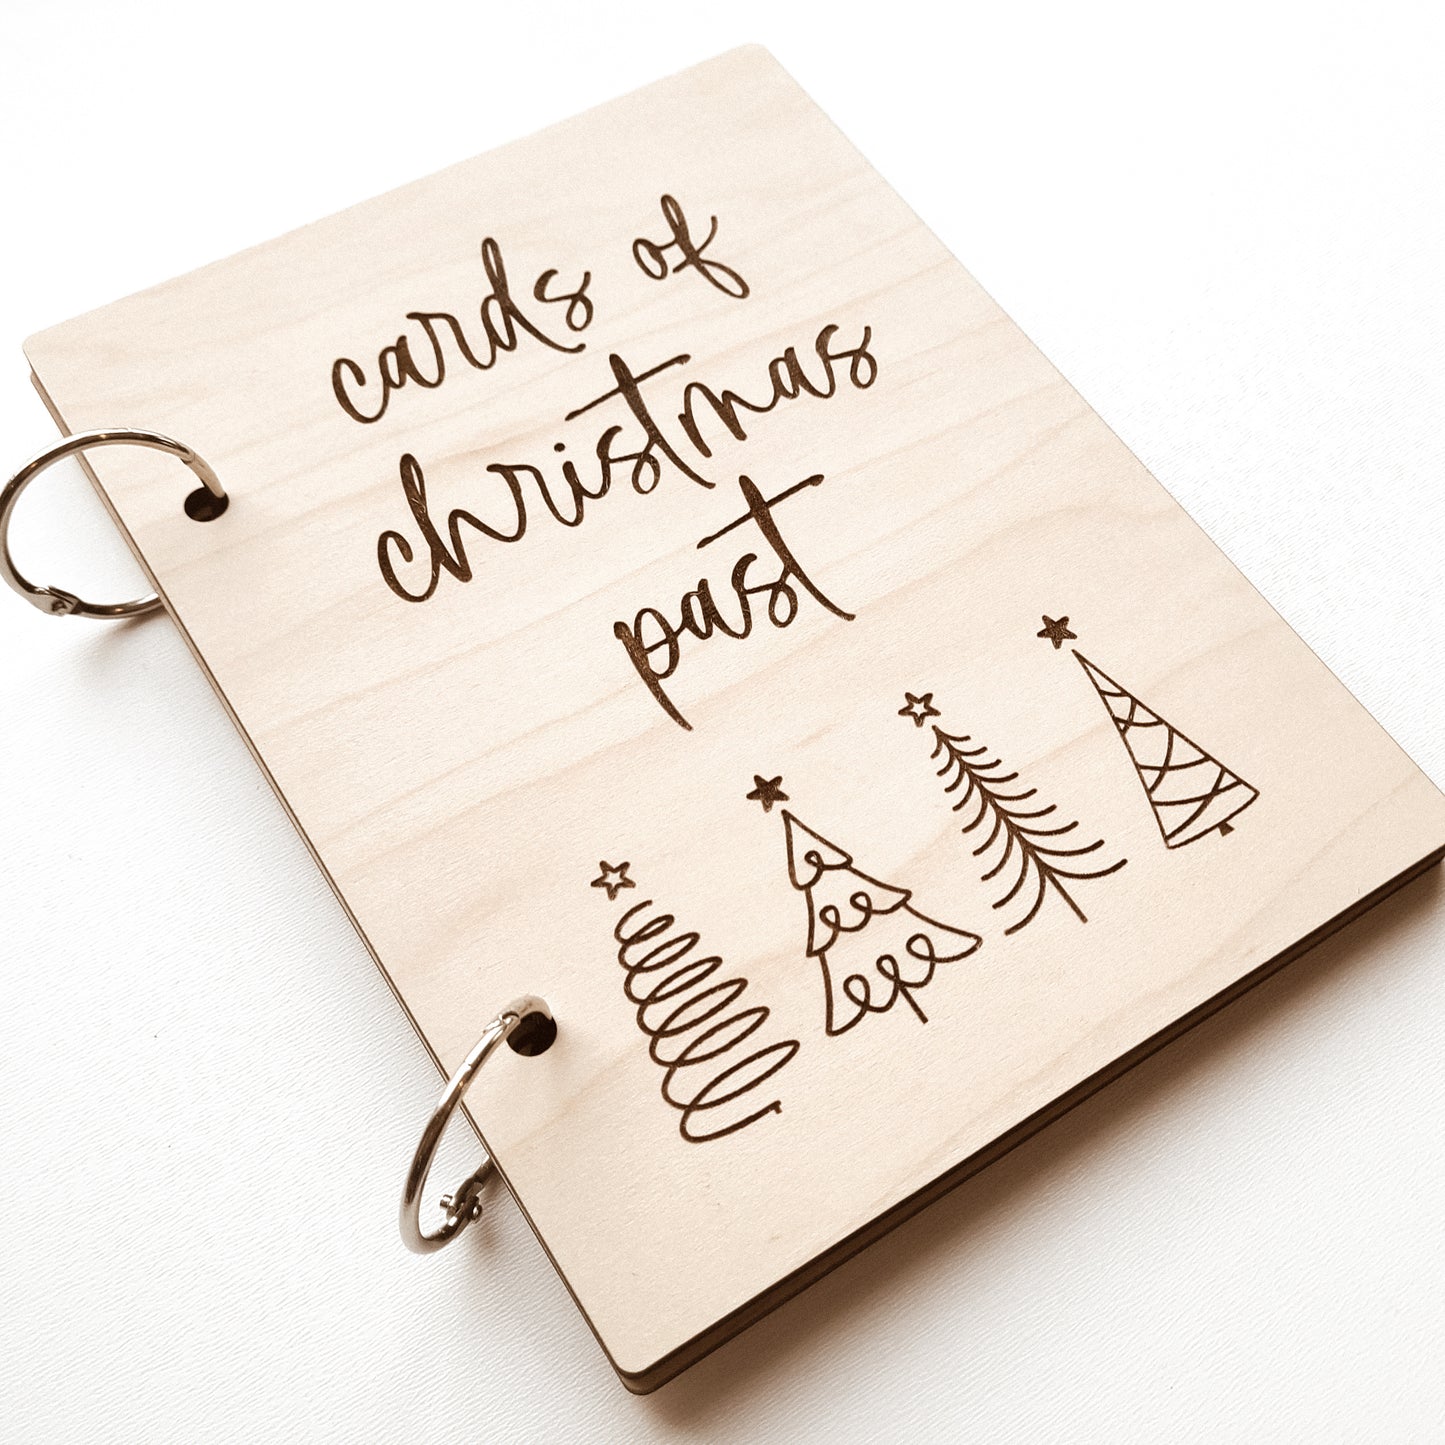 cards of
christmas
past